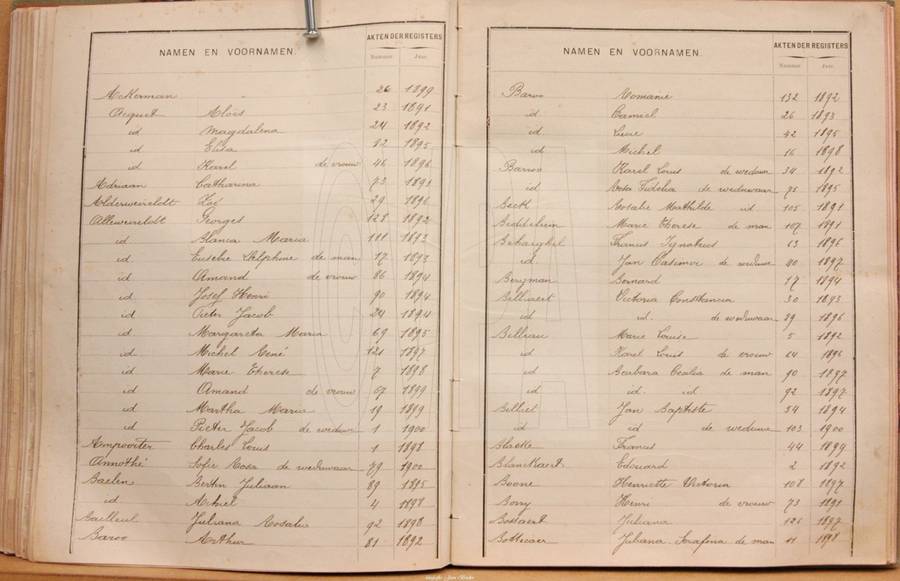 NAMEN EN VOORNAMEN. AKTEN DER REGISTERS
Nummer. Jaar.
Ackerman 26 1899
Acquet Aloïs 23 1891
id Magdalena 24 1892
id Elisa 12 1895
id Karel de vrouw 46 1896
Adriaan Catharina 73 1891
Alderweireldt 29 1896
Alleweireldt Georges 128 1892
id Blanca Maria 111 1893
id Eusebie Delphine de man 17 1893
id Amand de vrouw 86 1894
id Josef Henri 90 1894
id Pieter Jacob 24 1894
id Margareta Maria 69 1895
id Michel René 121 1897
id Marie Therese 7 1898
id Amand de vrouw 57 1899
id Martha Maria 19 1899
id Pieter Jacob de weduw 1 1900
Ampooter Charles Louis 1 1898
Annothé Sofie Rosa de weduwaar 79 1900
Baelen Bertin Juliaan 89 1895
id Achiel 4 1898
Bailleul Juliana Rosalie 92 1898
Baroo Arthur 81 1892
NAMEN EN VOORNAMEN. AKTEN DER REGISTERS
Nummer. Jaar.
Baroo Romanie 132 1892
id Camiel 26 1893
id 42 1895
id Michel 16 1898
Barroo Karel Louis de weduwe 34 1892
id Rosa Fidelia de weduwaar 75 1895
Rosalie Mathilde id 105 1891
Marie Therese de man 107 1891
Franus Ignatius 13 1896
id Jan Casimir de weduwe 90 1897
Bergman Bernard 17 1894
Billiaert Victoria Constancia 30 1893
id id de weduwaar 89 1896
Billiau Marie Louise 5 1892
id Karel Louis de vrouw 64 1896
id Barbara Cecilia de man 90 1897
id id id 92 1897
Billiet Jan Baptiste 34 1894
id id de weduwe 103 1900
Blacke Francis 44 1894
Blanckaert Edouard 2 1892
Boone Henriette Victoria 108 1897
Borry Henri de vrouw 73 1891
Bossaert Juliana 126 1897
Botteaer Juliana Serafina de man 11 1898